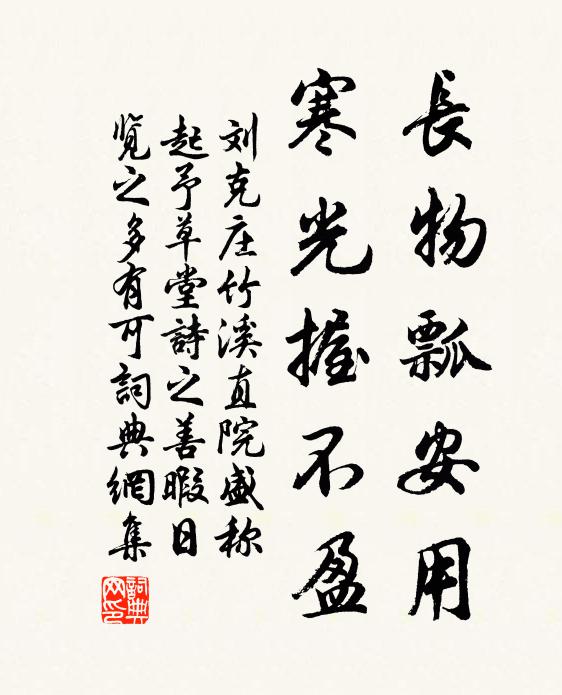 長物瓢安用
寒光握不盈
刘克庄竹溪直院盛称
起予草堂詩之善暇日
覧之多有可詞典網集
詞典
网印